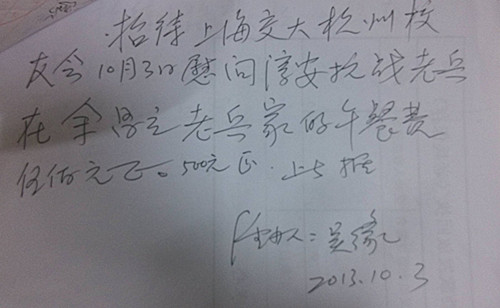 招待上海交大杭州校
友会10月3日慰问淳安抗战老兵
在余昌之老兵家的午餐费
伍佰元正。500元正.上与据
经办人:吴缘
2013.10.3